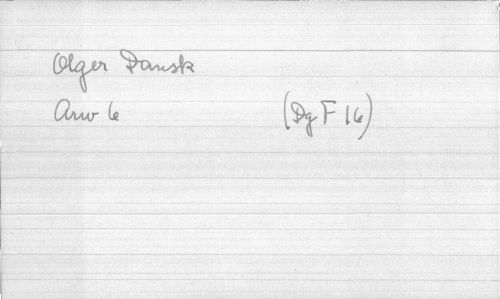 Olger Dansk
Arw 6 (DgF 16)